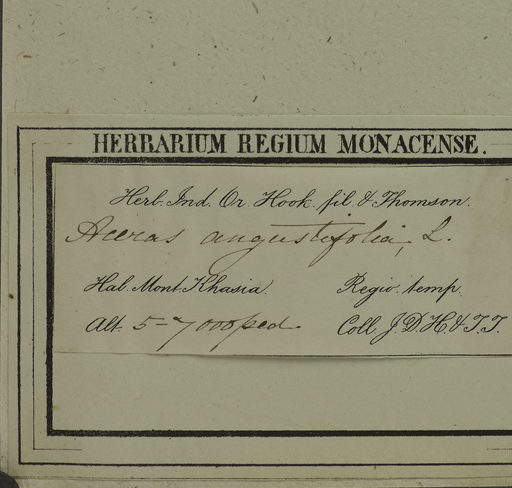 HERBARIUM REGIUM MONACENSE.
Herb. Ind. Or. Hook. fil. & Thomson.
Aceras angustifolia, L.
Hab. Mont. Khasia. Regio. temp.
Alt. 5-7000 ped. Coll. J. D. H. & T. T.